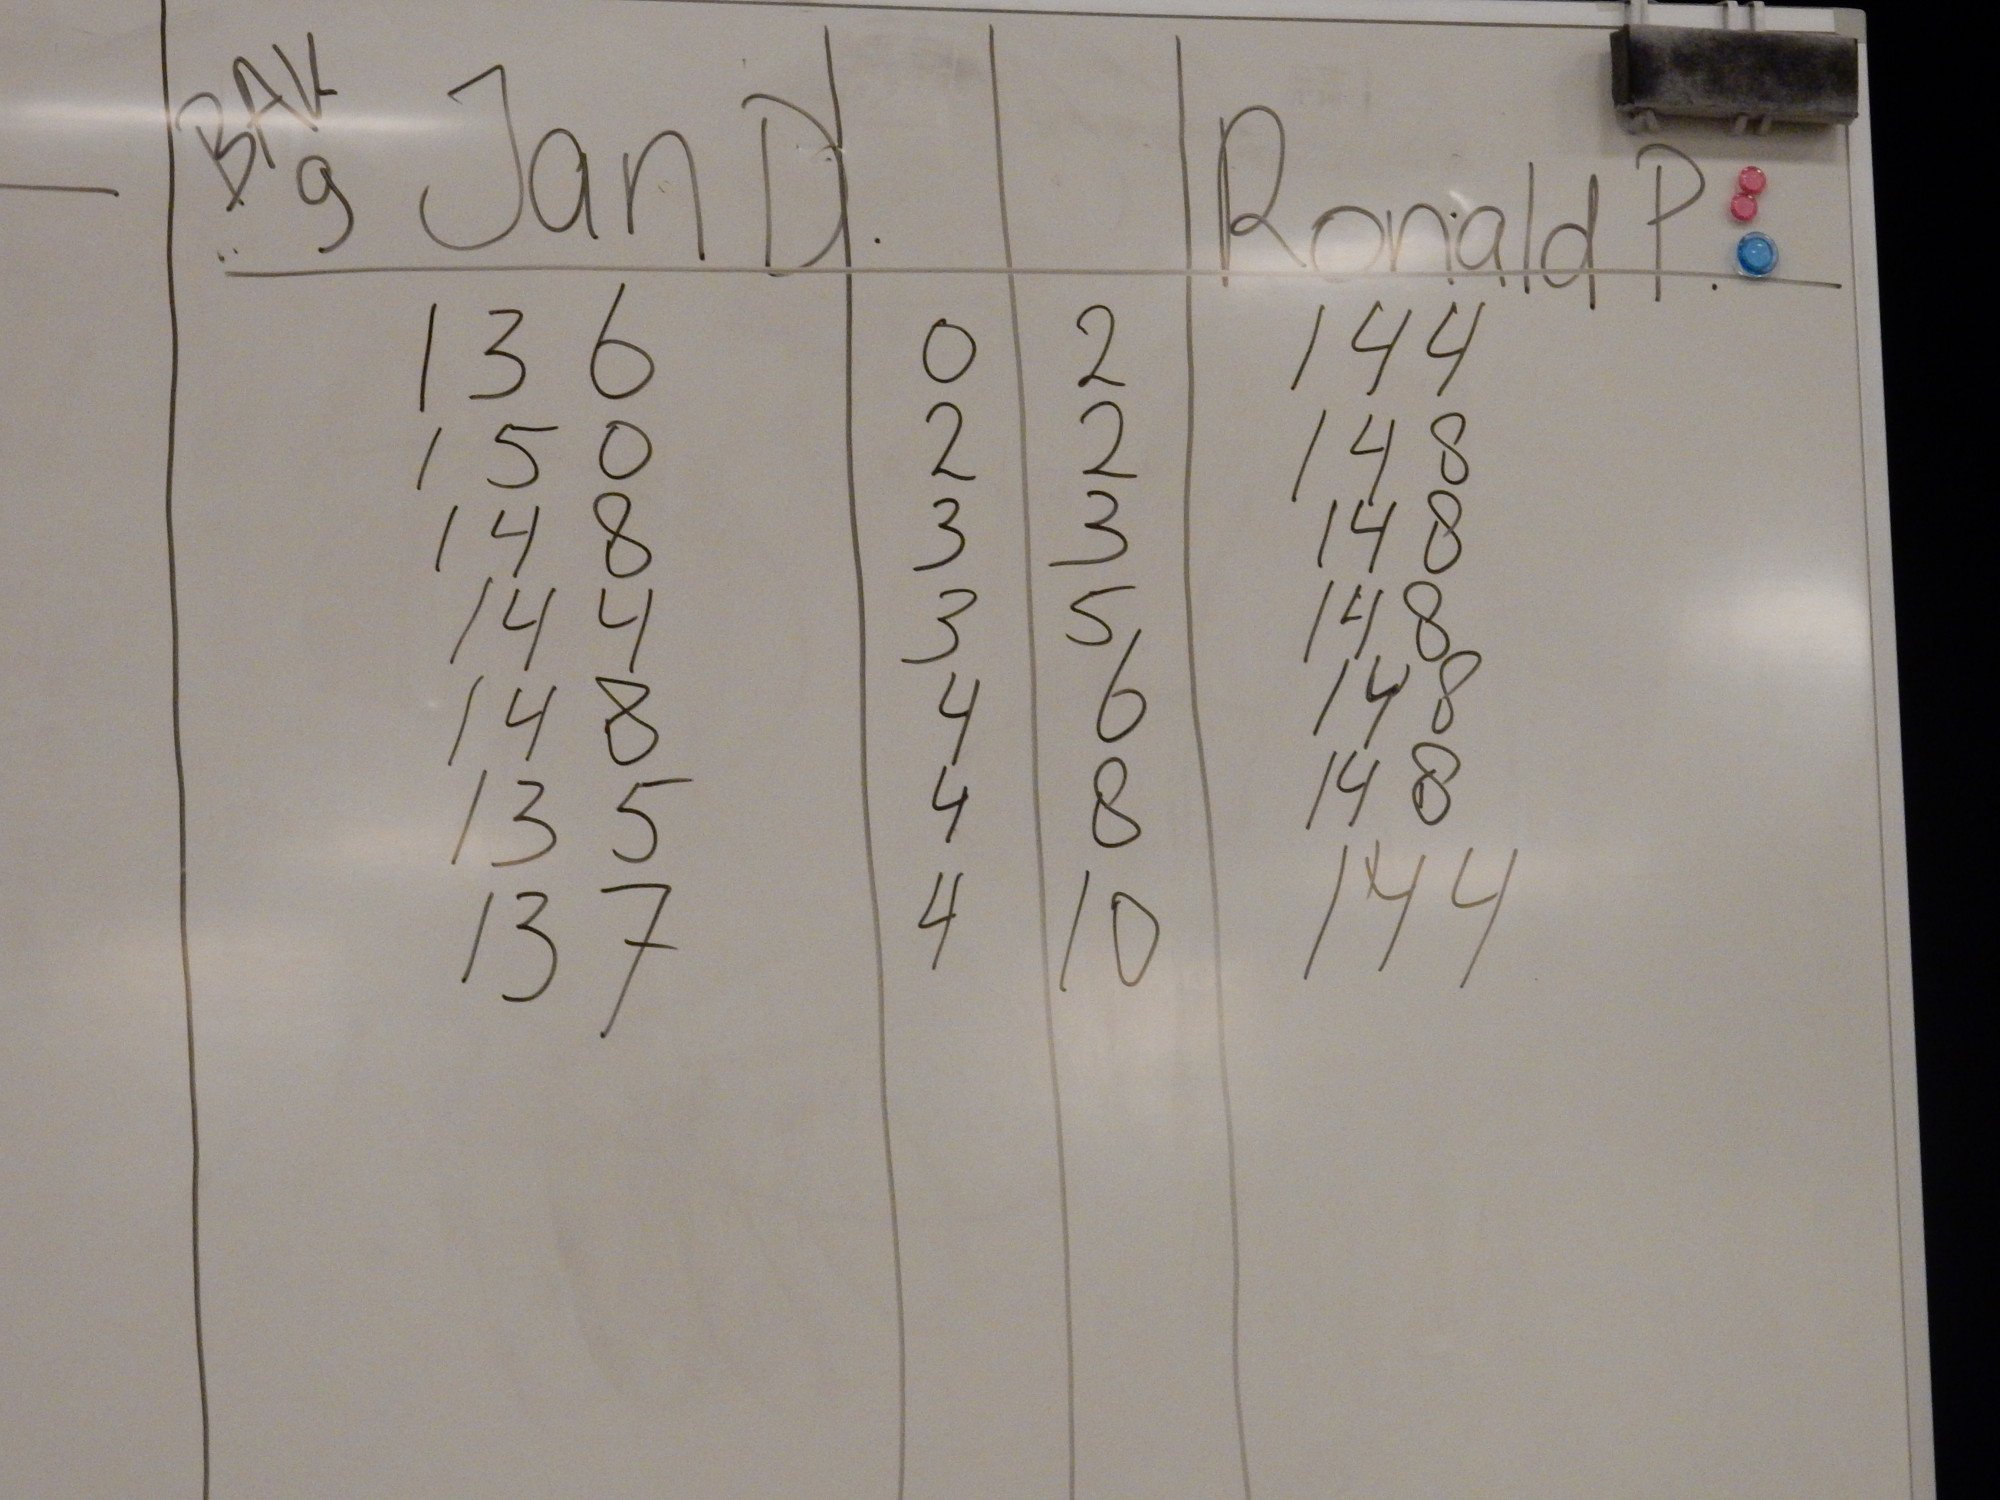 BAK
9 Jan D. Ronald P.
136 0 2 144
150 2 2 148
148 3 3 148
144 3 5 148
148 4 6 148
135 4 8 148
137 4 10 144